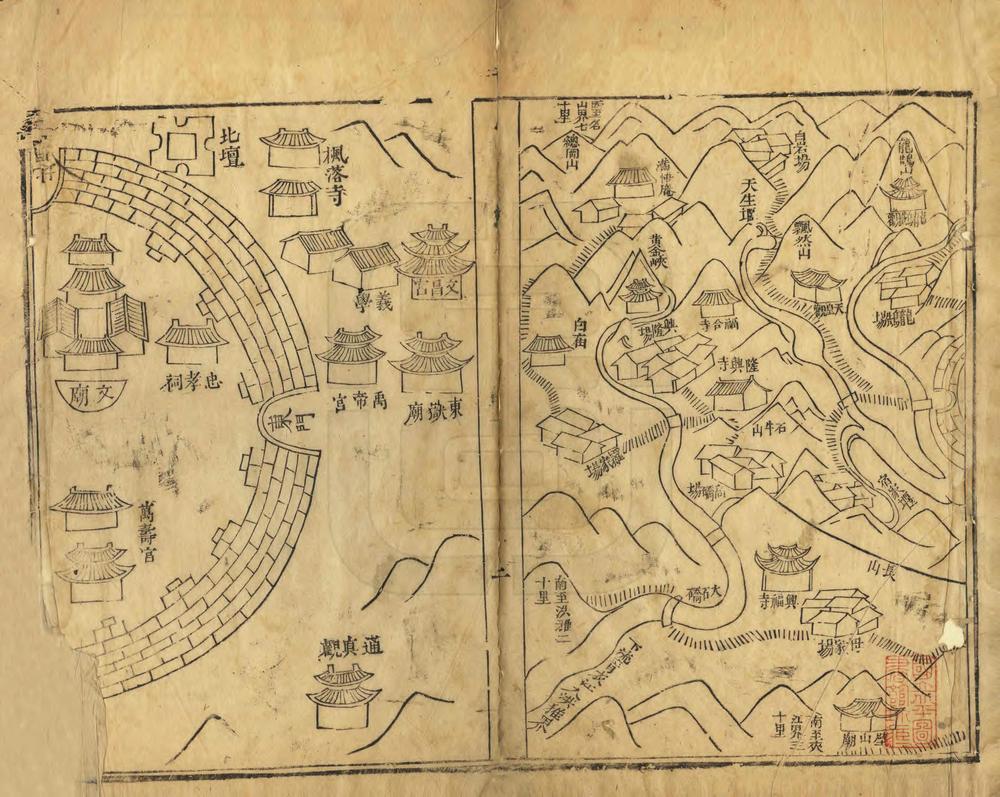 北壇
楓落寺
義學
文昌宮
文廟
忠孝祠
禹帝宮
東嶽廟
東門
萬壽宮
通真觀
山界七
十里
總岡山
白岩場
天生堰
龍鵠山
飄然山
黃金峽
天皇觀
龍鵠場
興隆場
福合寺
隆興寺
石牛山
羅家場
高橋場
長山
興福寺
大石橋
南至洪雅二
十里
世家場
南至夾
江界三
十里
壁山廟